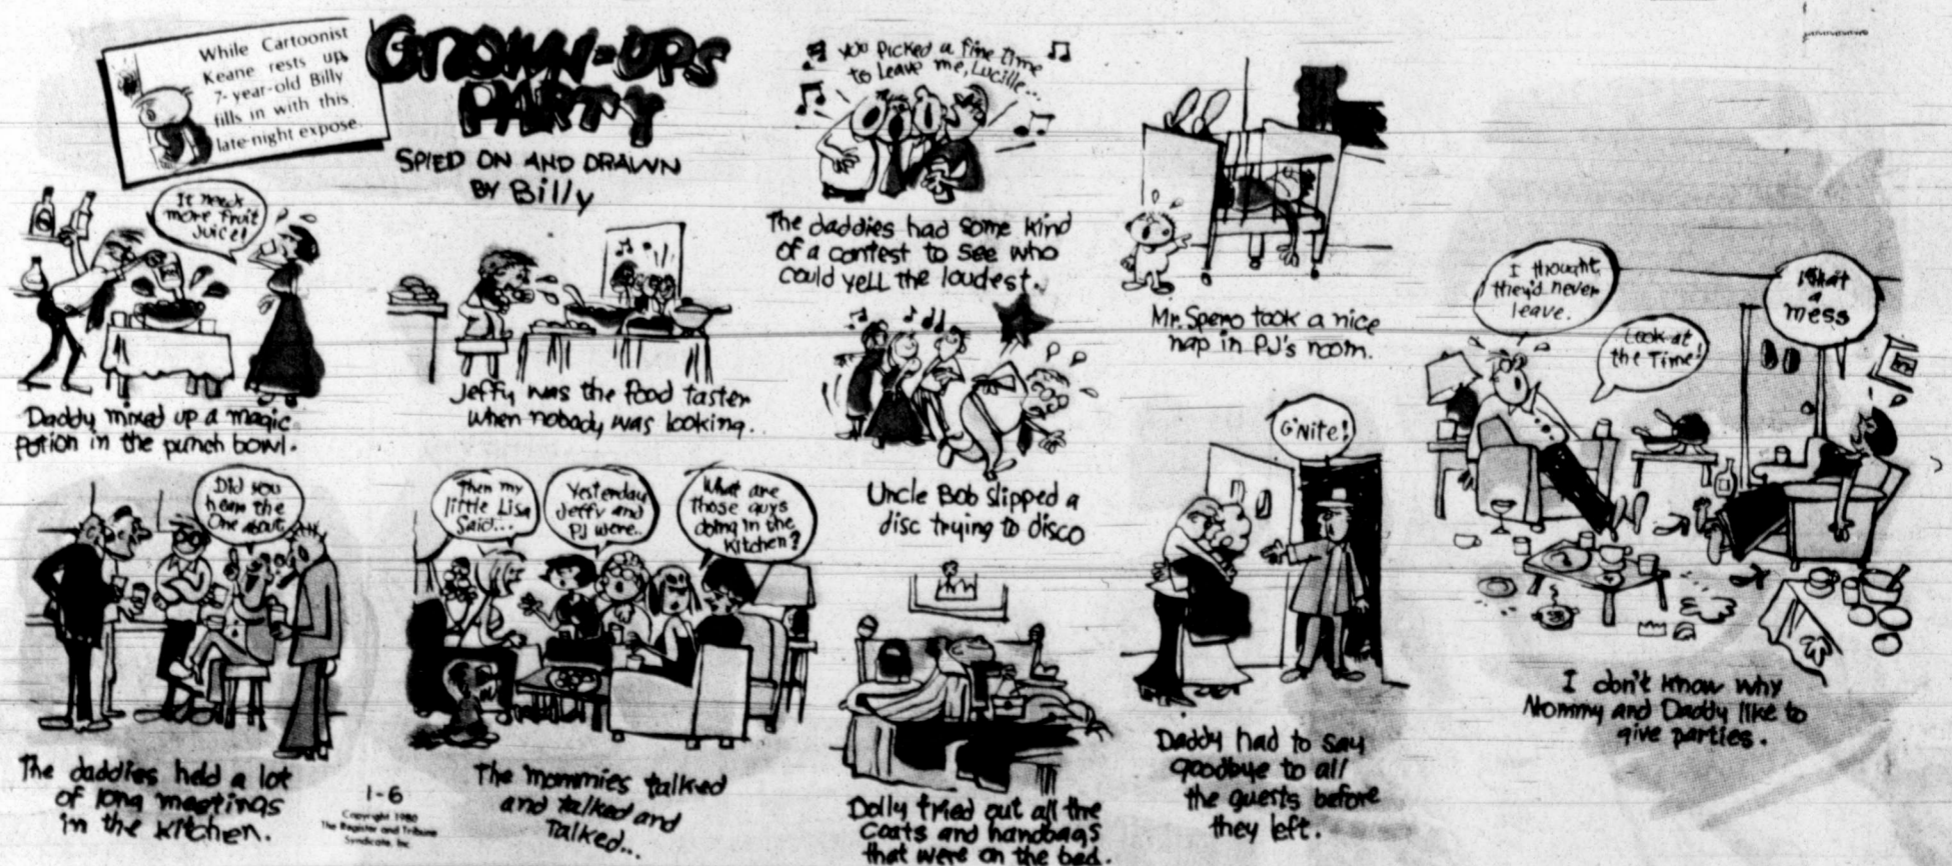 While Cartoonist
Keane rests up,
7-year-old Billy
fills in with this
late-night expose.
GROWN-UPS
PARTY
SPIED ON AND DRAWN
BY Billy
It needs
more fruit
Juice!
Daddy mixed up a magic
potion in the punch bowl.
Jeffy was the food taster
when nobody was looking.
You picked a fine time
to leave me, Lucille...
The daddies had some kind
of a contest to see who
could yell the loudest.
Mr. Spero took a nice
nap in PJ's room.
Did you
hear the
One about
The daddies held a lot
of long meetings
in the kitchen.
1-6
Copyright 1980
The Register and Tribune
Syndicate, Inc.
Then my
little Lisa
Said...
Yesterday
Jeffy and
PJ were..
What are
those guys
doing in the
kitchen?
The mommies talked
and talked and
Talked...
Uncle Bob slipped a
disc trying to disco
Dolly tried out all the
coats and handbags
that were on the bed.
G'Nite!
Daddy had to say
goodbye to all
the guests before
they left.
I thought
they'd never
leave.
Look at
the Time!
What
a
mess
I don't know why
Mommy and Daddy like to
give parties.